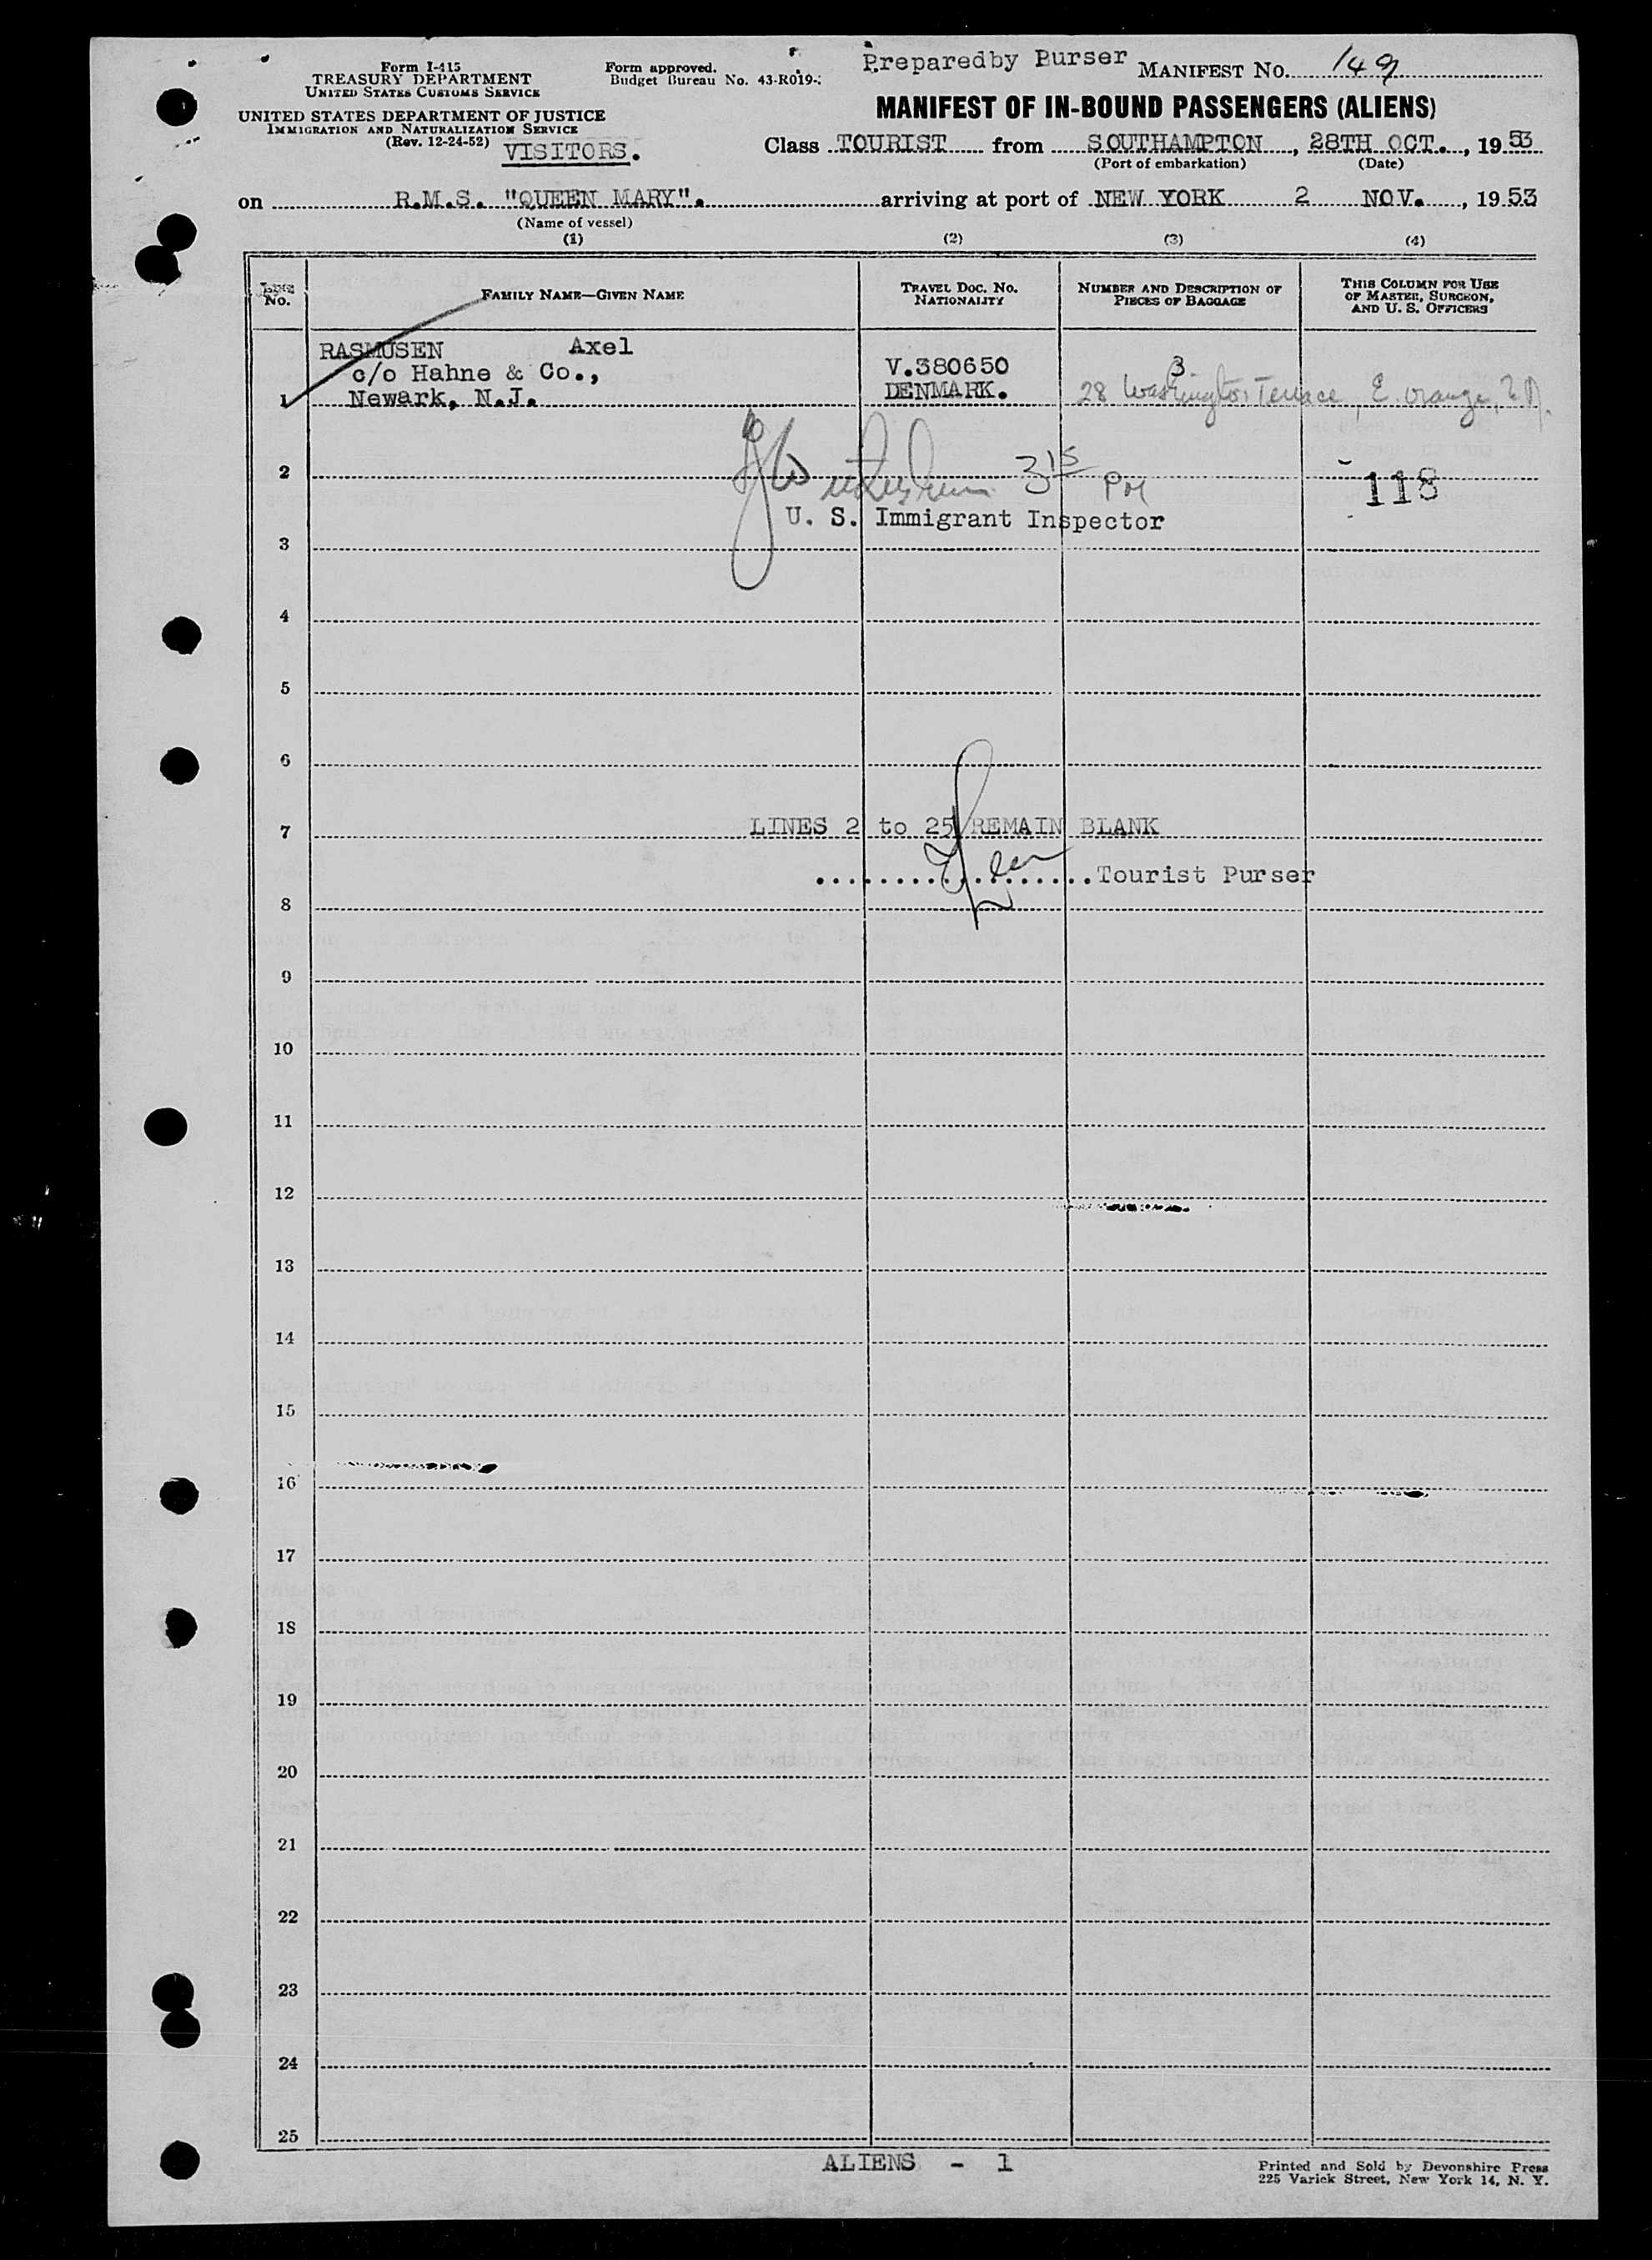 Form I-415
TREASURY DEPARTMENT
UNITED STATES CUSTOMS SERVICE
Form approved.
Budget Bureau No. 43-R019-
Preparedby Purser
MANIFEST No. 149
UNITED STATES DEPARTMENT OF JUSTICE
IMMIGRATION AND NATURALIZATION SERVICE
(Rev. 12-24-52)
VISITORS.
MANIFEST OF IN-BOUND PASSENGERS (ALIENS)
Class TOURIST from SOUTHAMPTON, 28TH OCT., 1953
(Port of embarkation) (Date)
on R.M.S. "QUEEN MARY". arriving at port of NEW YORK 2 NOV., 1953
(Name of vessel)
(1) (2) (3) (4)
LINE No.
FAMILY NAME—GIVEN NAME
TRAVEL DOC. No. NATIONALITY
NUMBER AND DESCRIPTION OF PIECES OF BAGGAGE
THIS COLUMN FOR USE OF MASTER, SURGEON, AND U. S. OFFICERS
RASMUSEN Axel
c/o Hahne & Co., V.380650 3
1 Newark, N.J. DENMARK. 28 Washington Terrace, E. Orange, N.J.
2 3 15 PM 118
U. S. Immigrant Inspector
3
4
5
6
7 LINES 2 to 25 REMAIN BLANK
..................Tourist Purser
8
9
10
11
12
13
14
15
16
17
18
19
20
21
22
23
24
25
ALIENS - 1
Printed and Sold by Devonshire Press
225 Varick Street, New York 14, N. Y.